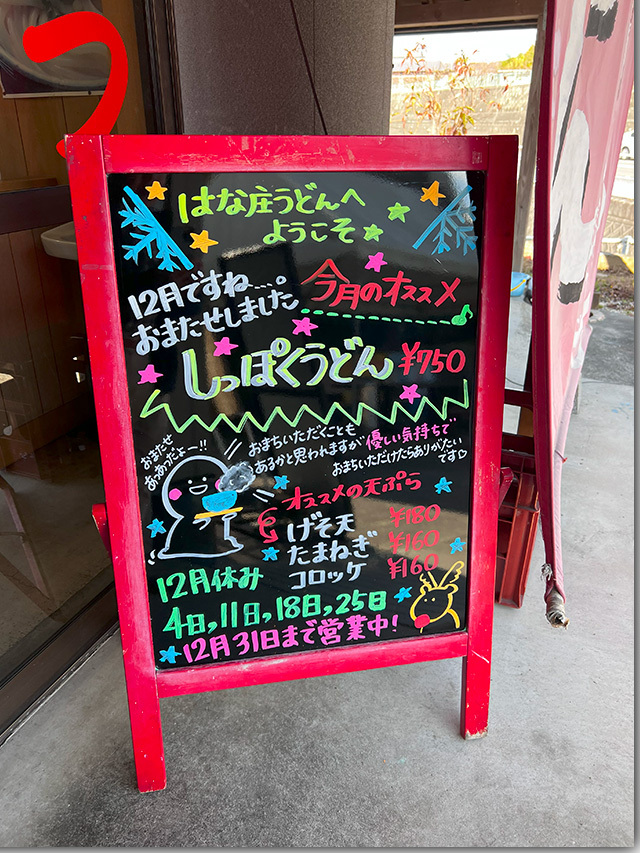 はな庄うどんへ
ようこそ
12月ですね....。
おまたせしました
今月のオススメ
しっぽくうどん ¥750
おまたせ
あつあつだよー!!
おまちいただくことも
あるかと思われますが優しい気持ちで
おまちいただけたらありがたい
です♡
オススメの天ぷら
げそ天 ¥180
たまねぎ ¥160
コロッケ ¥160
12月休み
4日,11日,18日,25日
12月31日まで営業中!